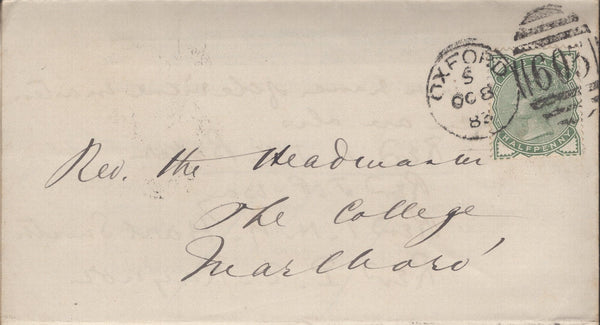 OXFORD
S
OC 8
83
603
HALFPENNY
Rev. the Headmaster
The College
Marlboro'